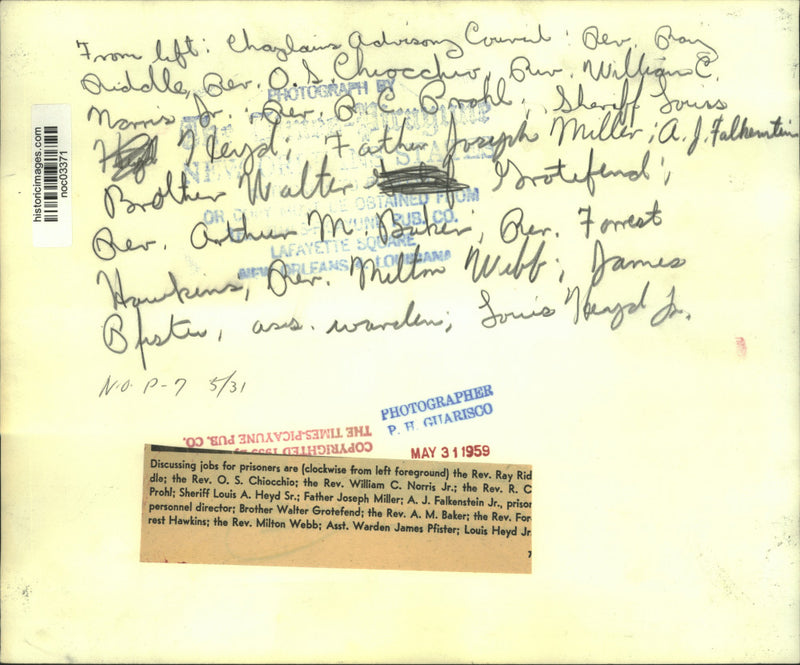 From left: Chaplains Advisory Council: Rev. Ray
Riddle, Rev. O. S. Chiocchio, Rev. William C.
Norris Jr.; Rev. R C Prohl, Sheriff Louis
Heyd; Father Joseph Miller; A. J. Falkenstein
Brother Walter Grotefend;
Rev. Arthur M. Baker; Rev. Forrest
Hawkins, Rev. Milton Webb; James
Pfister, ass. warden; Louis Heyd Jr.
PHOTOGRAPH BY
The Times-Picayune
NEW ORLEANS STATES
OBTAINED FROM
PUB. CO.
LAFAYETTE SQUARE
NEW ORLEANS, LOUISIANA
historicimages.com
noc03371
N.O. P-7 5/31
PHOTOGRAPHER
P. H. GUARISCO
COPYRIGHTED 1959
THE TIMES-PICAYUNE PUB. CO.
MAY 31 1959
Discussing jobs for prisoners are (clockwise from left foreground) the Rev. Ray Rid
dle; the Rev. O. S. Chiocchio; the Rev. William C. Norris Jr.; the Rev. R. C
Prohl; Sheriff Louis A. Heyd Sr.; Father Joseph Miller; A. J. Falkenstein Jr., prison
personnel director; Brother Walter Grotefend; the Rev. A. M. Baker; the Rev. For
rest Hawkins; the Rev. Milton Webb; Asst. Warden James Pfister; Louis Heyd Jr